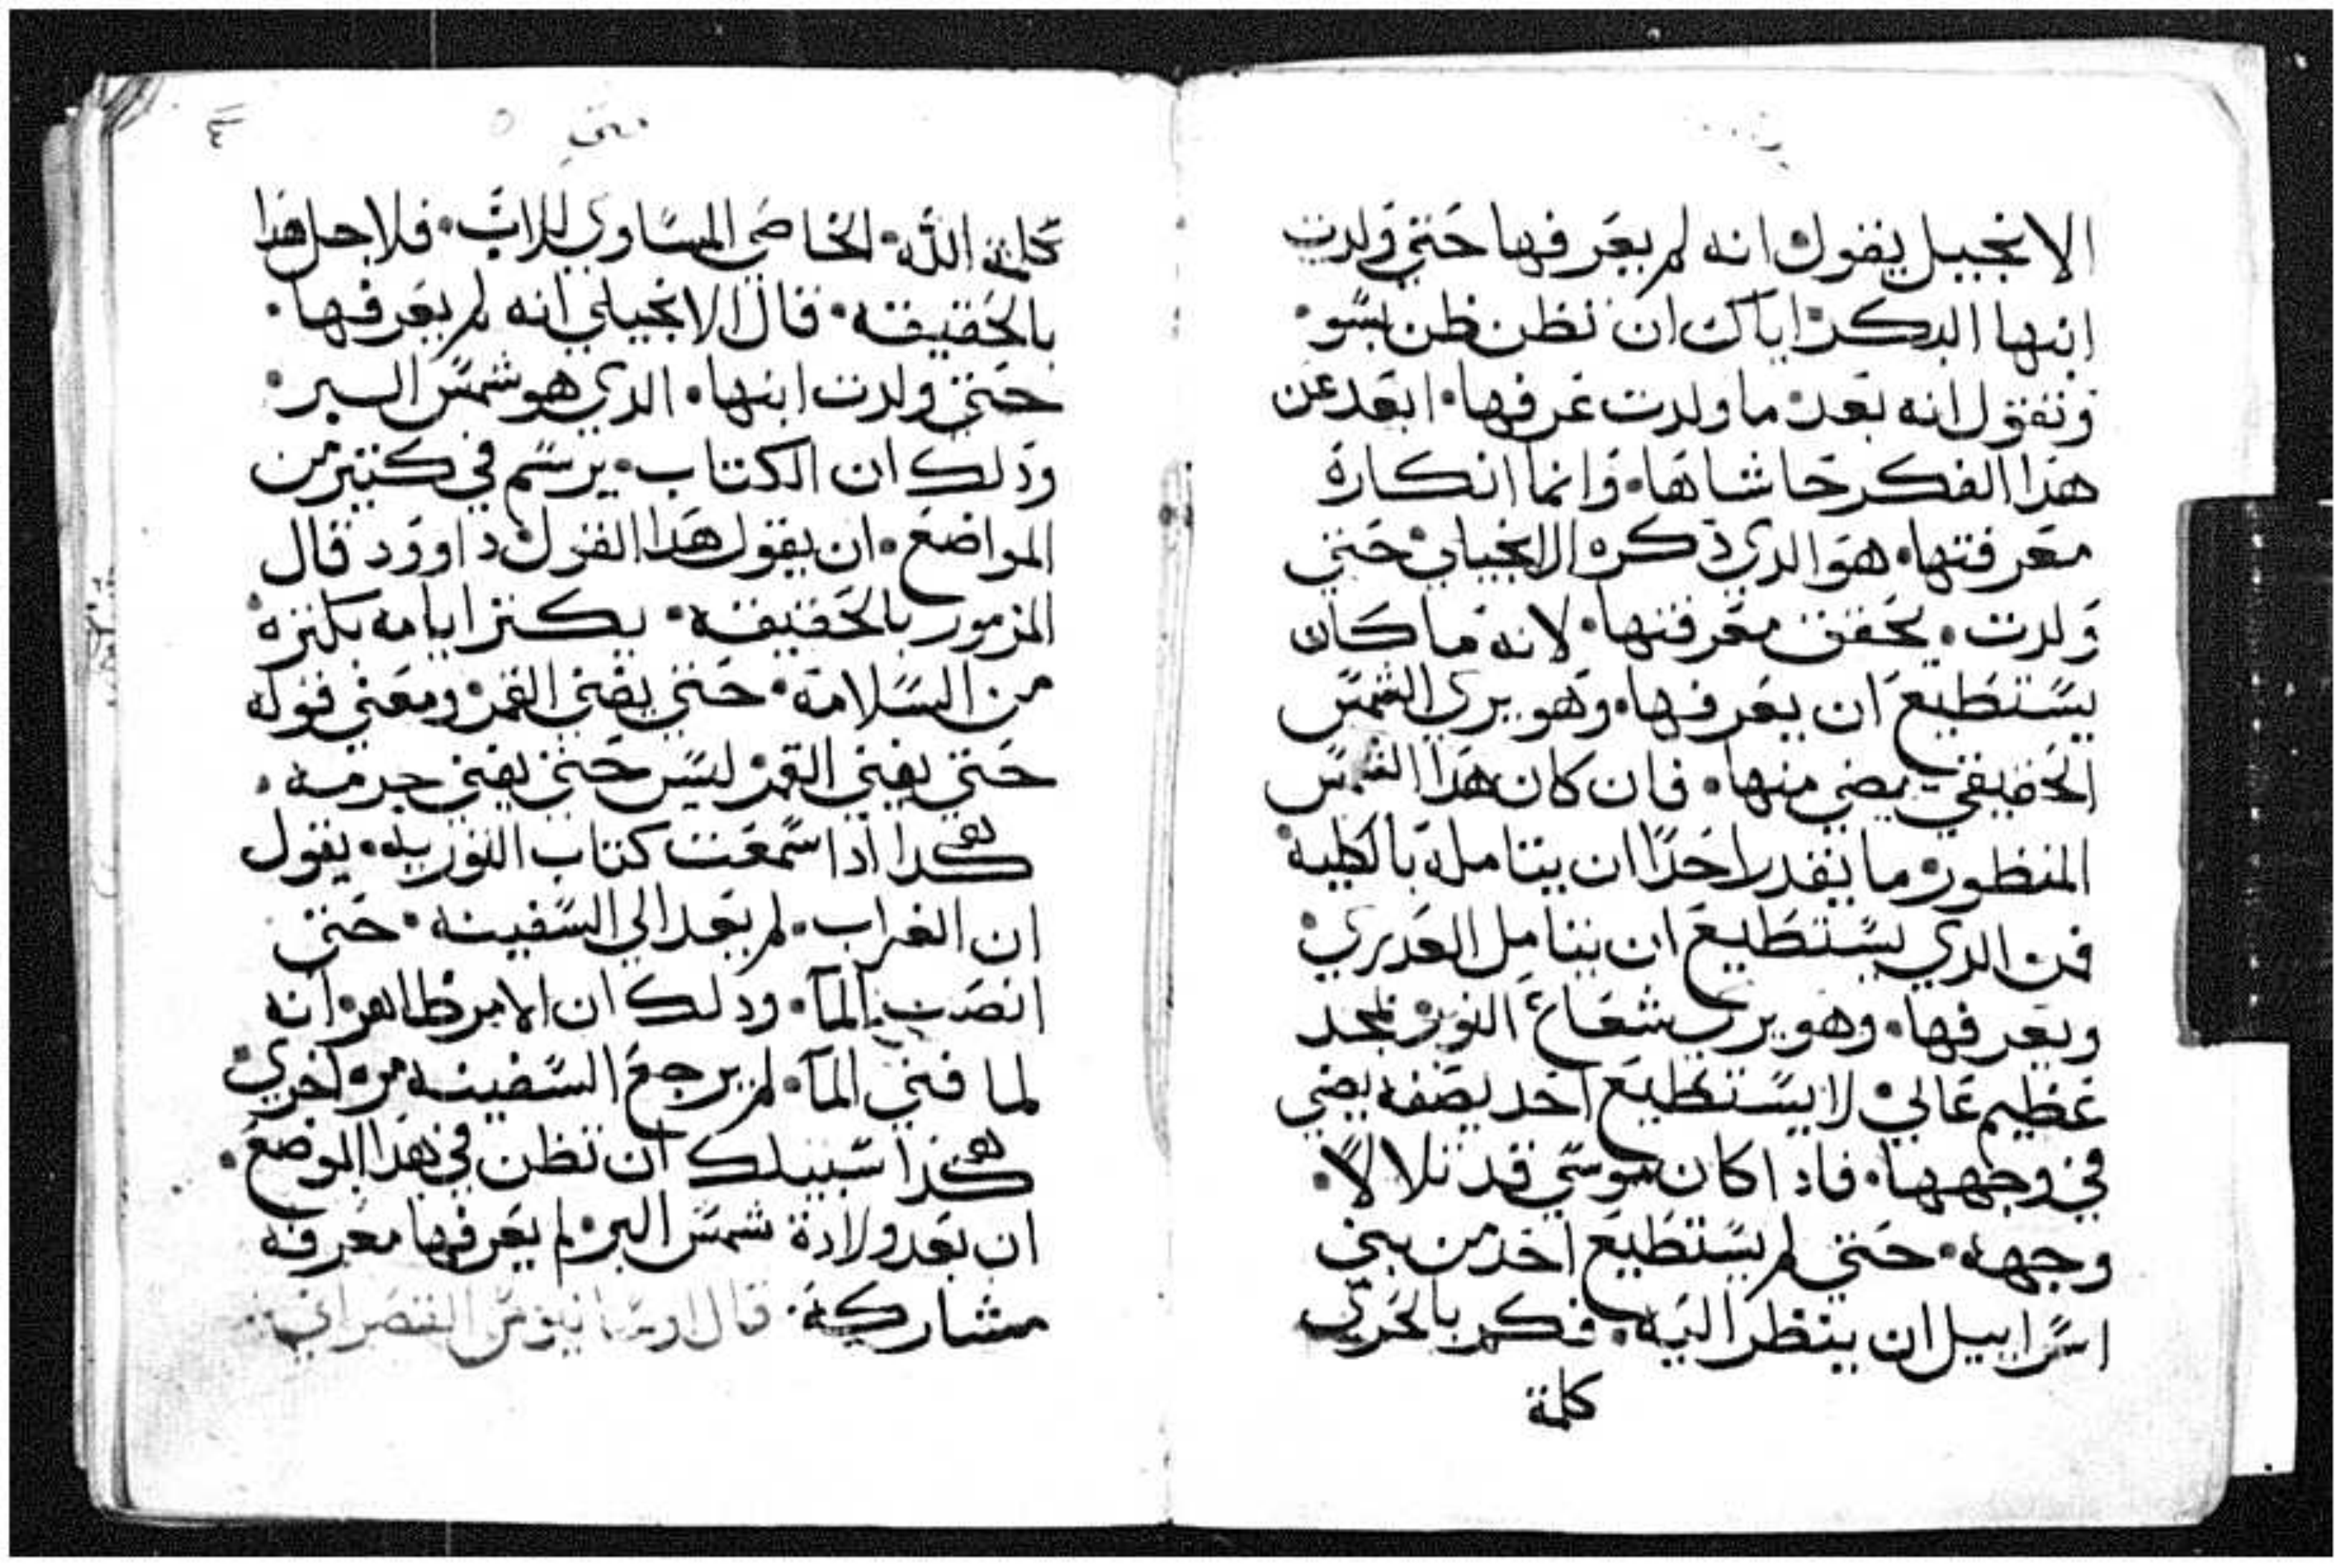 الانجيل يقول انه لم يعرفها حتي ولدت
ابنها البكر اياك ان تظن ظن بسو
وتقول انه بعد ما ولدت عرفها ابعد عن
هذا الفكر حاشاها وانما انكاره
معرفتها هو الدي ذكره الانجيلي حتي
ولدت يحقق معرفتها لانه ما كان
يستطيع ان يعرفها وهو يري الشمس
الحقيقي يضي منها فان كان هدا الشمس
المنظور ما يقدر احدا ان يتامله بالكليه
فمن الدي يستطيع ان يتامل العدري
ويعرفها وهو يري شعاع النور بمجد
عظيم عالي لا يستطيع احد يصفه يضي
في وجهها فادا كان موسي قد تلالا
وجهه حتي لم يستطيع احد من بني
اسراييل ان ينظر اليه فكم بالحري
كلمة
متي
٤
كلمة الله الخاصي المساوي للاب فلاجل هدا
بالحقيقه قال الانجيلي انه لم يعرفها
حتي ولدت ابنها الدي هو شمس البر
ودلك ان الكتاب يرسم في كتير من
المواضع ان يقول هدا القول داوود قال
المزمور بالحقيقه يكتر ايامه بكتره
من السلامه حتي يفني القمر ومعني قوله
حتي يفني القمر ليس حتي يفني جرمه
هكدا ادا سمعت كتاب التوريه يقول
ان الغراب لم يعد الي السفينه حتي
انصب المآ ودلك ان الامر ظاهر انه
لما فني المآ لم يرجع السفينه مره اخري
هكدا سبيلك ان تظن في هدا الموضع
ان بعد ولادة شمس البر لم يعرفها معرفه
مشاركه قال